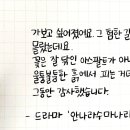 가보고 싶어졌어요. 그 험한 길
몰랐는데요.
꽃은 잘 닦인 아스팔트가 아니
울퉁불퉁한 흙에서 피는 거더
그동안 감사했습니다.
- 드라마 '안나라수마나라